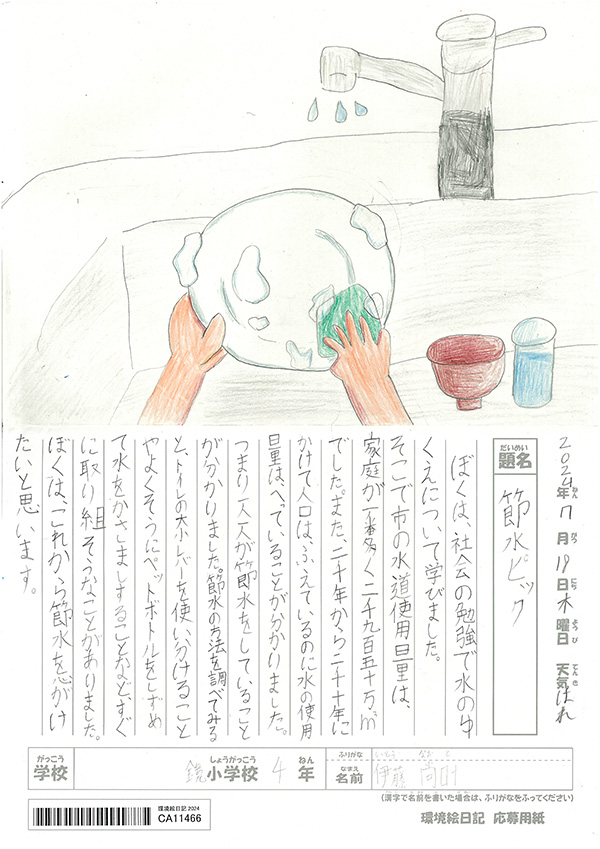 2024年7月18日木曜日 天気はれ
ねん がつ にち ようび てんき
だいめい
題名 節水ピック
ぼくは、社会の勉強で水のゆ
くえについて学びました。
そこで市の水道使用量は、
家庭が一番多く二千九百五十万㎥
でした。また、二千年から二千十年に
かけて人口は、ふえているのに水の使用
量は、へっていることが分かりました。
つまり一人一人が節水をしていること
が分かりました。節水の方法を調べてみる
と、トイレの大小レバーを使い分けること
やよくそうにペットボトルをしずめ
て水をかさましすることなど、すぐ
に取り組そうなことがありました。
ぼくは、これから節水を心がけ
たいと思います。
がっこう しょうがっこう ねん ふりがな
学校 鏡小学校 4年
なまえ
名前 伊藤
(漢字で名前を書いた場合は、ふりがなをふってください)
環境絵日記 2024
CA11466
環境絵日記 応募用紙